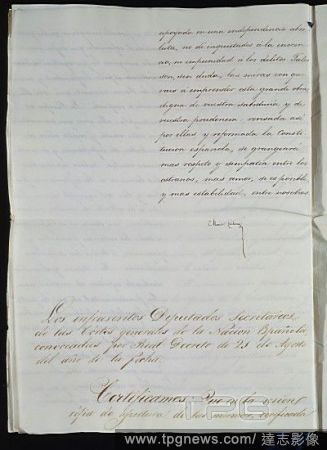 apoyada en una independencia abso-
luta, no de inquietudes á la inocen-
cia, ni impunidad á los delitos. Tales
son, sin duda, las miras con que
vais á emprender esta grande obra
digna de vuestra sabiduria y de
vuestra prudencia; revisada así
por ellas, y reformada la Consti-
tucion española, se grangeará
mas respeto y simpatia entre los
estraños, mas amor,
y mas estabilidad, entre nosotros.
Los infrascritos Diputados Secretarios
de las Cortes generales de la Nacion Española
convocadas por Real Decreto de 21 de Agosto
del año de la fecha.
Certificamos: Que
de apertura de las mismas verificada
TPG
www.tpgnews.com / 達志影像